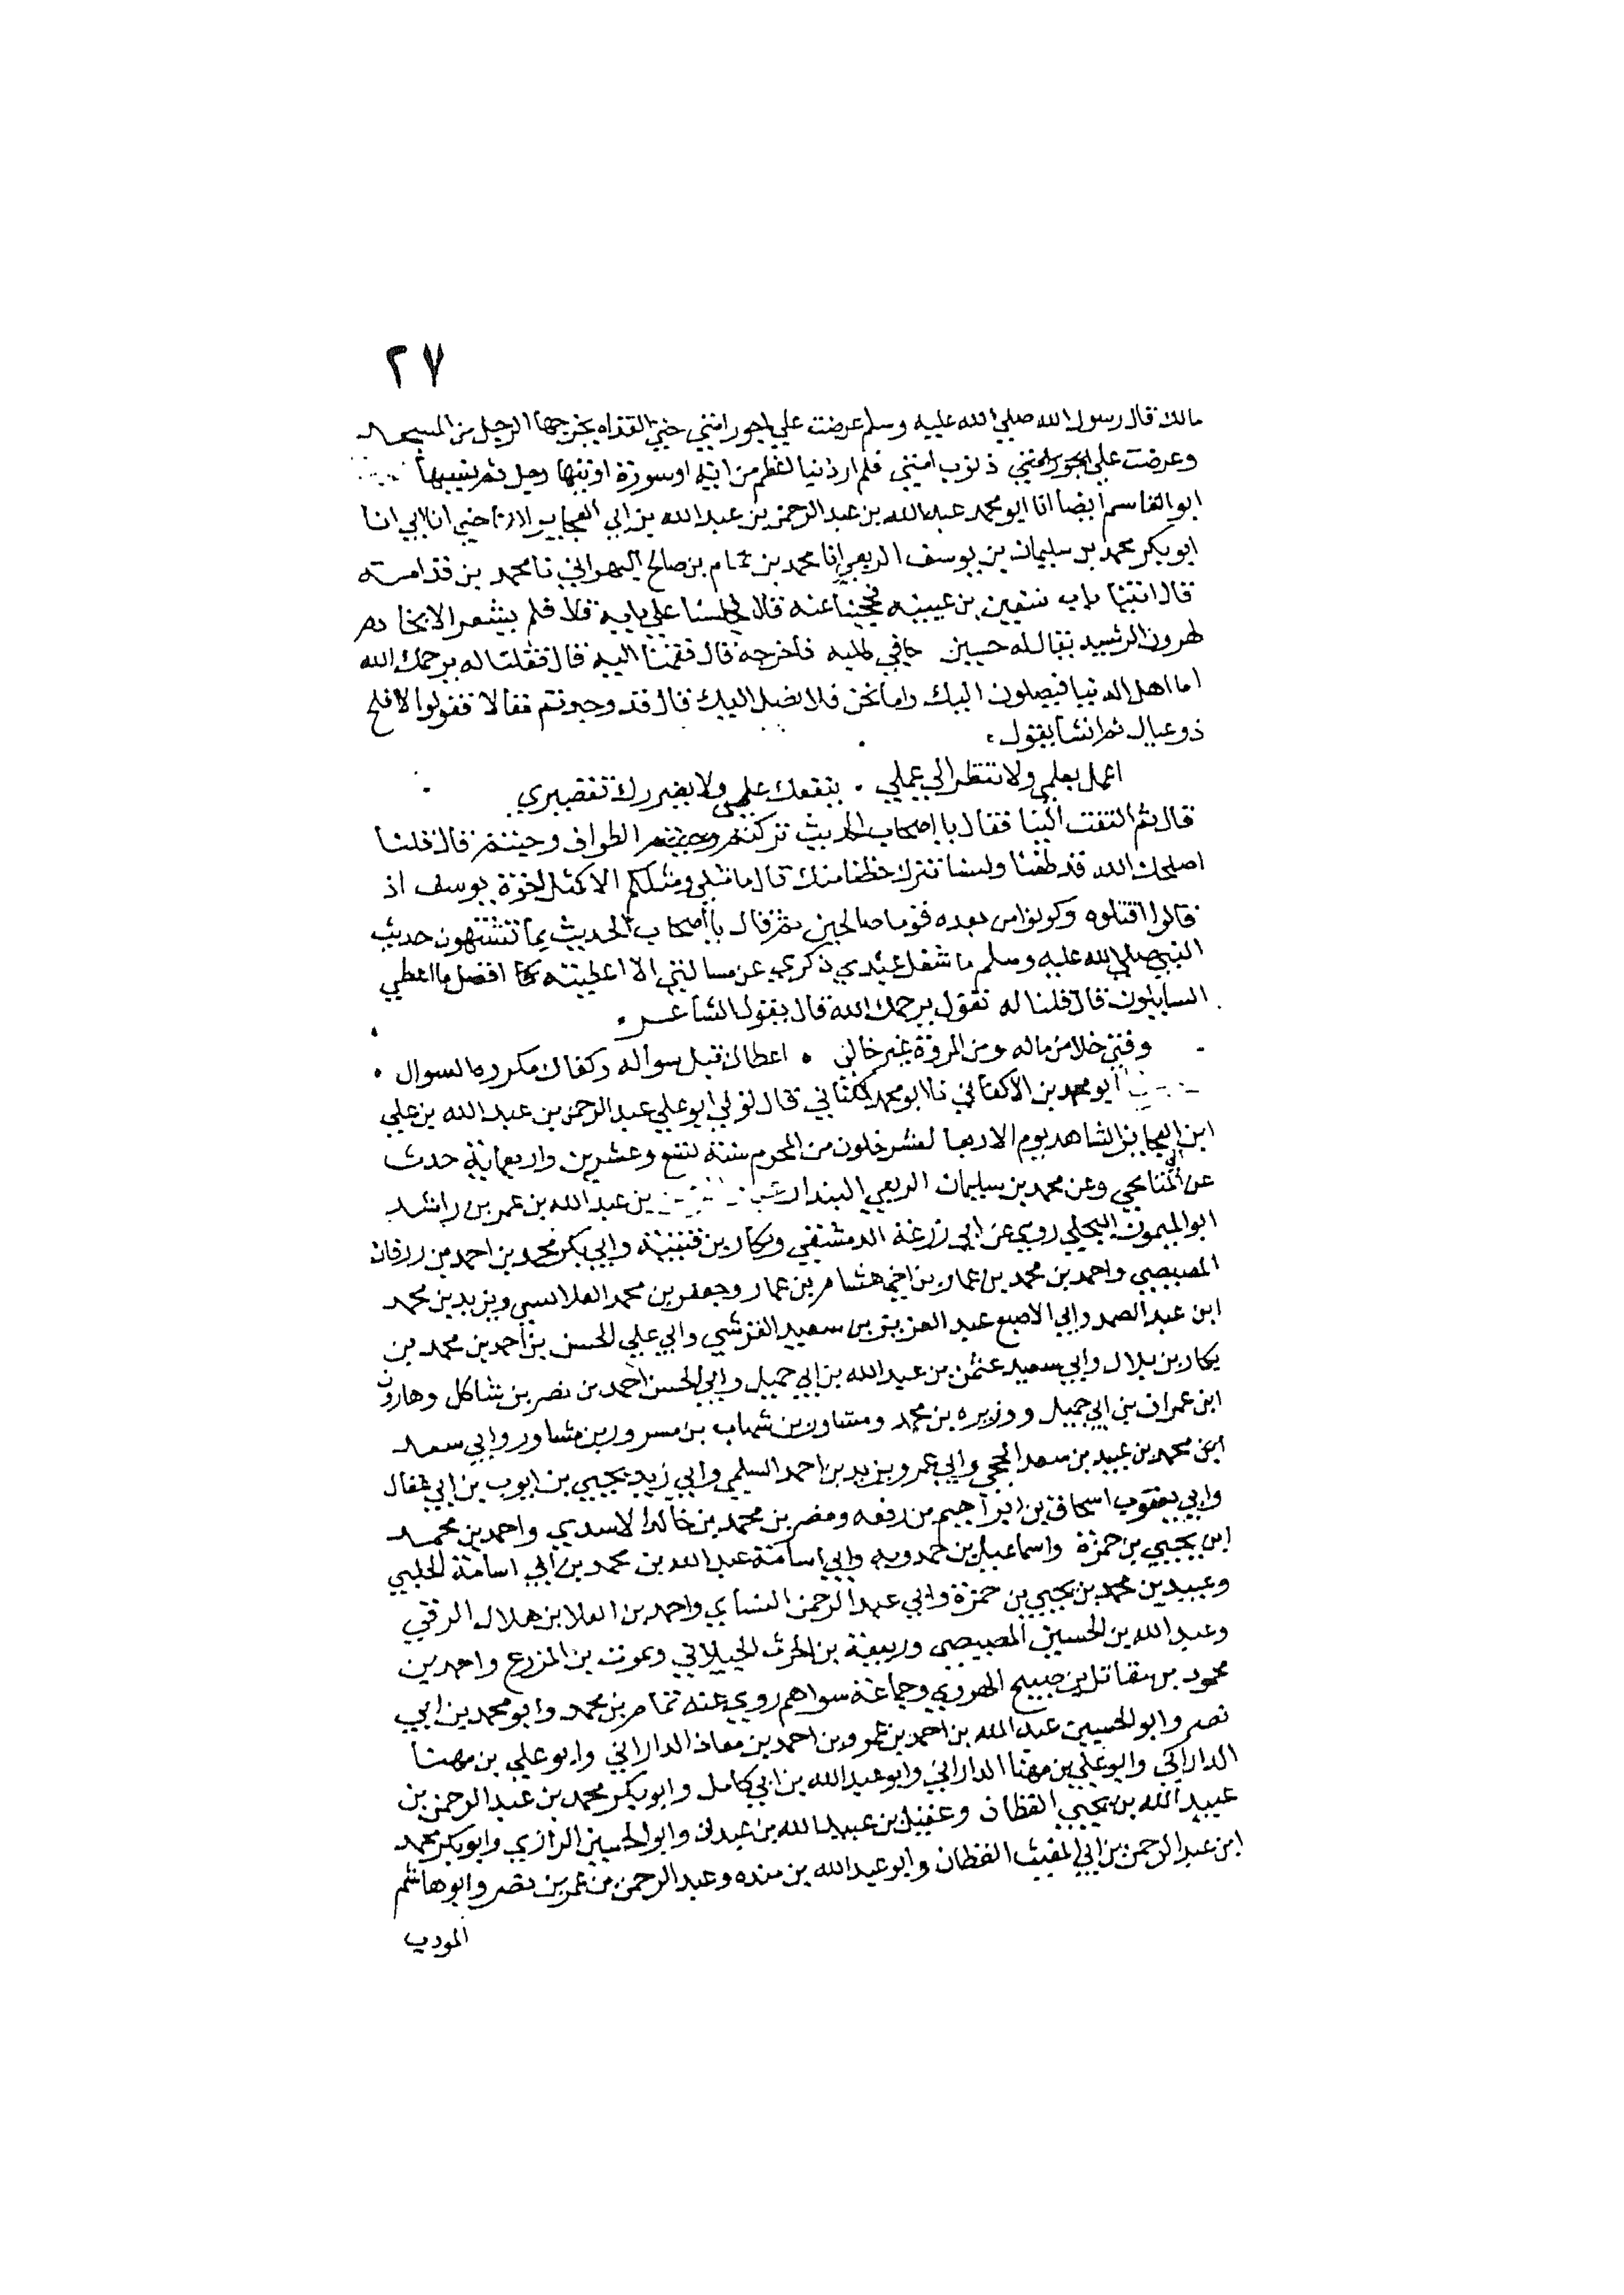 ٢٧
مالك قال رسول الله صلي الله عليه وسلم عرضت علي اجور امتي حتي القذاه يخرجها الرجل من المسجد
وعرضت علي ذنوب امتي فلم ار ذنبا اعظم من ايه او سورة اوتيها رجل ثم نسيها
ابو القاسم ايضا انا ابو محمد عبد الله بن عبد الرحمن بن عبد الله بن ابي العجايز الازدي انا ابي انا
ابو بكر محمد بن سليمان بن يوسف الربعي انا محمد بن تمام بن صالح البهراني نا محمد بن قدامه
قال اتينا باب سفين بن عيينه فحجبنا عنه قال فجلسنا علي بابه قال فلم يشعر الا بخادم
لهرون الرشيد يقال له حسين جا في طلبه فاخرجه قال فقمنا اليه قال فقلنا له يرحمك الله
اما اهل الدنيا فيصلون اليك واما نحن فلا نصل اليك قال قد وجدتم مقالا فقولوا لا افلح
ذو عيال ثم انشا يقول
اعمل بعلمي ولا تنظر الي عملي . ينفعك علمي ولا يضررك تقصيري
قال ثم التفت الينا فقال يا اصحاب الحديث تركتم الطواف وجيتم قال قلنا
اصلحك الله قد طفنا ولسنا نترك حظنا منك قال ما مثلي ومثلكم الا كمثل اخوة يوسف اذ
قالوا اقتلوه وكونوا من بعده قوما صالحين ثم قال يا اصحاب الحديث بما تشبهون حديث
النبي صلي الله عليه وسلم ما شغل عبدي ذكري عن مسالتي الا اعطيته افضل ما اعطي
السايلون قال قلنا له تقول يرحمك الله قال يقول الشاعر .
وفتي خلا من ماله ومن المروة غير خالي . اعطاك قبل سواله وكفاك مكروه السوال .
ابو محمد بن الاكفاني نا ابو محمد الكتاني قال توفي ابو علي عبد الرحمن بن عبد الله بن علي
ابن ابي العجايز الشاهد يوم الاربعا لعشر خلون من المحرم سنة تسع وعشرين واربعماية حدث
عن الميانجي وعن محمد بن سليمان الربعي البندار بن عبد الله بن عمر بن راشد
ابو الميمون البجلي روي عن ابي زرعة الدمشقي وبكار بن قتيبة وابي بكر محمد بن احمد بن رزقان
المصيصي واحمد بن محمد بن عمار بن اخي هشام بن عمار وجعفر بن محمد القلانسي ويزيد بن محمد
ابن عبد الصمد وابي الاصبع عبد العزيز بن سعيد القرشي وابي علي الحسن بن احمد بن محمد بن
بكار بن بلال وابي سعيد عثمن بن عبد الله بن ابي جميل وابي الحسن احمد بن نصر بن شاكل وهارون
ابن عمران بن ابي جميل ووزيره بن محمد ومساور بن شهاب بن مسرور بن مساور وابي سعد
ابن محمد بن عبيد بن سعد الجمحي وابي عمرو يزيد بن احمد السلمي وابي زيد يحيي بن ايوب بن ابي عقال
وابي يعقوب اسحاق بن ابراهيم بن رفعه ومضر بن محمد بن خالد الاسدي واحمد بن محمد
ابن يحيي بن حمزة واسماعيل بن حمدويه وابي اسامة عبد الله بن محمد بن ابي اسامة الحلبي
وعبيد بن محمد بن يحيي بن حمزة وابي عبد الرحمن النساي واحمد بن العلا بن هلال الرقي
وعبد الله بن الحسين المصيصي وربيعة بن الحرث الجبلاني ويموت بن المزرع واحمد بن
محمود بن مقاتل بن صبيح الهروي وجماعة سواهم روي عنه تمام بن محمد وابو محمد بن ابي
نصر وابو الحسين عبد الله بن احمد بن عمرو بن احمد بن معاذ الداراني وابو علي بن مهنا
الداراني وابو علي بن مهنا الداراني وابو عبد الله بن ابي كامل وابو بكر محمد بن عبد الرحمن بن
عبيد الله بن يحيي القطان وعقيل بن عبيد الله بن عبدان وابو الحسين الرازي وابو بكر محمد
ابن عبد الرحمن بن ابي المغيث القطان وابو عبد الله بن منده وعبد الرحمن بن عمر بن نصر وابو هاشم
المودب